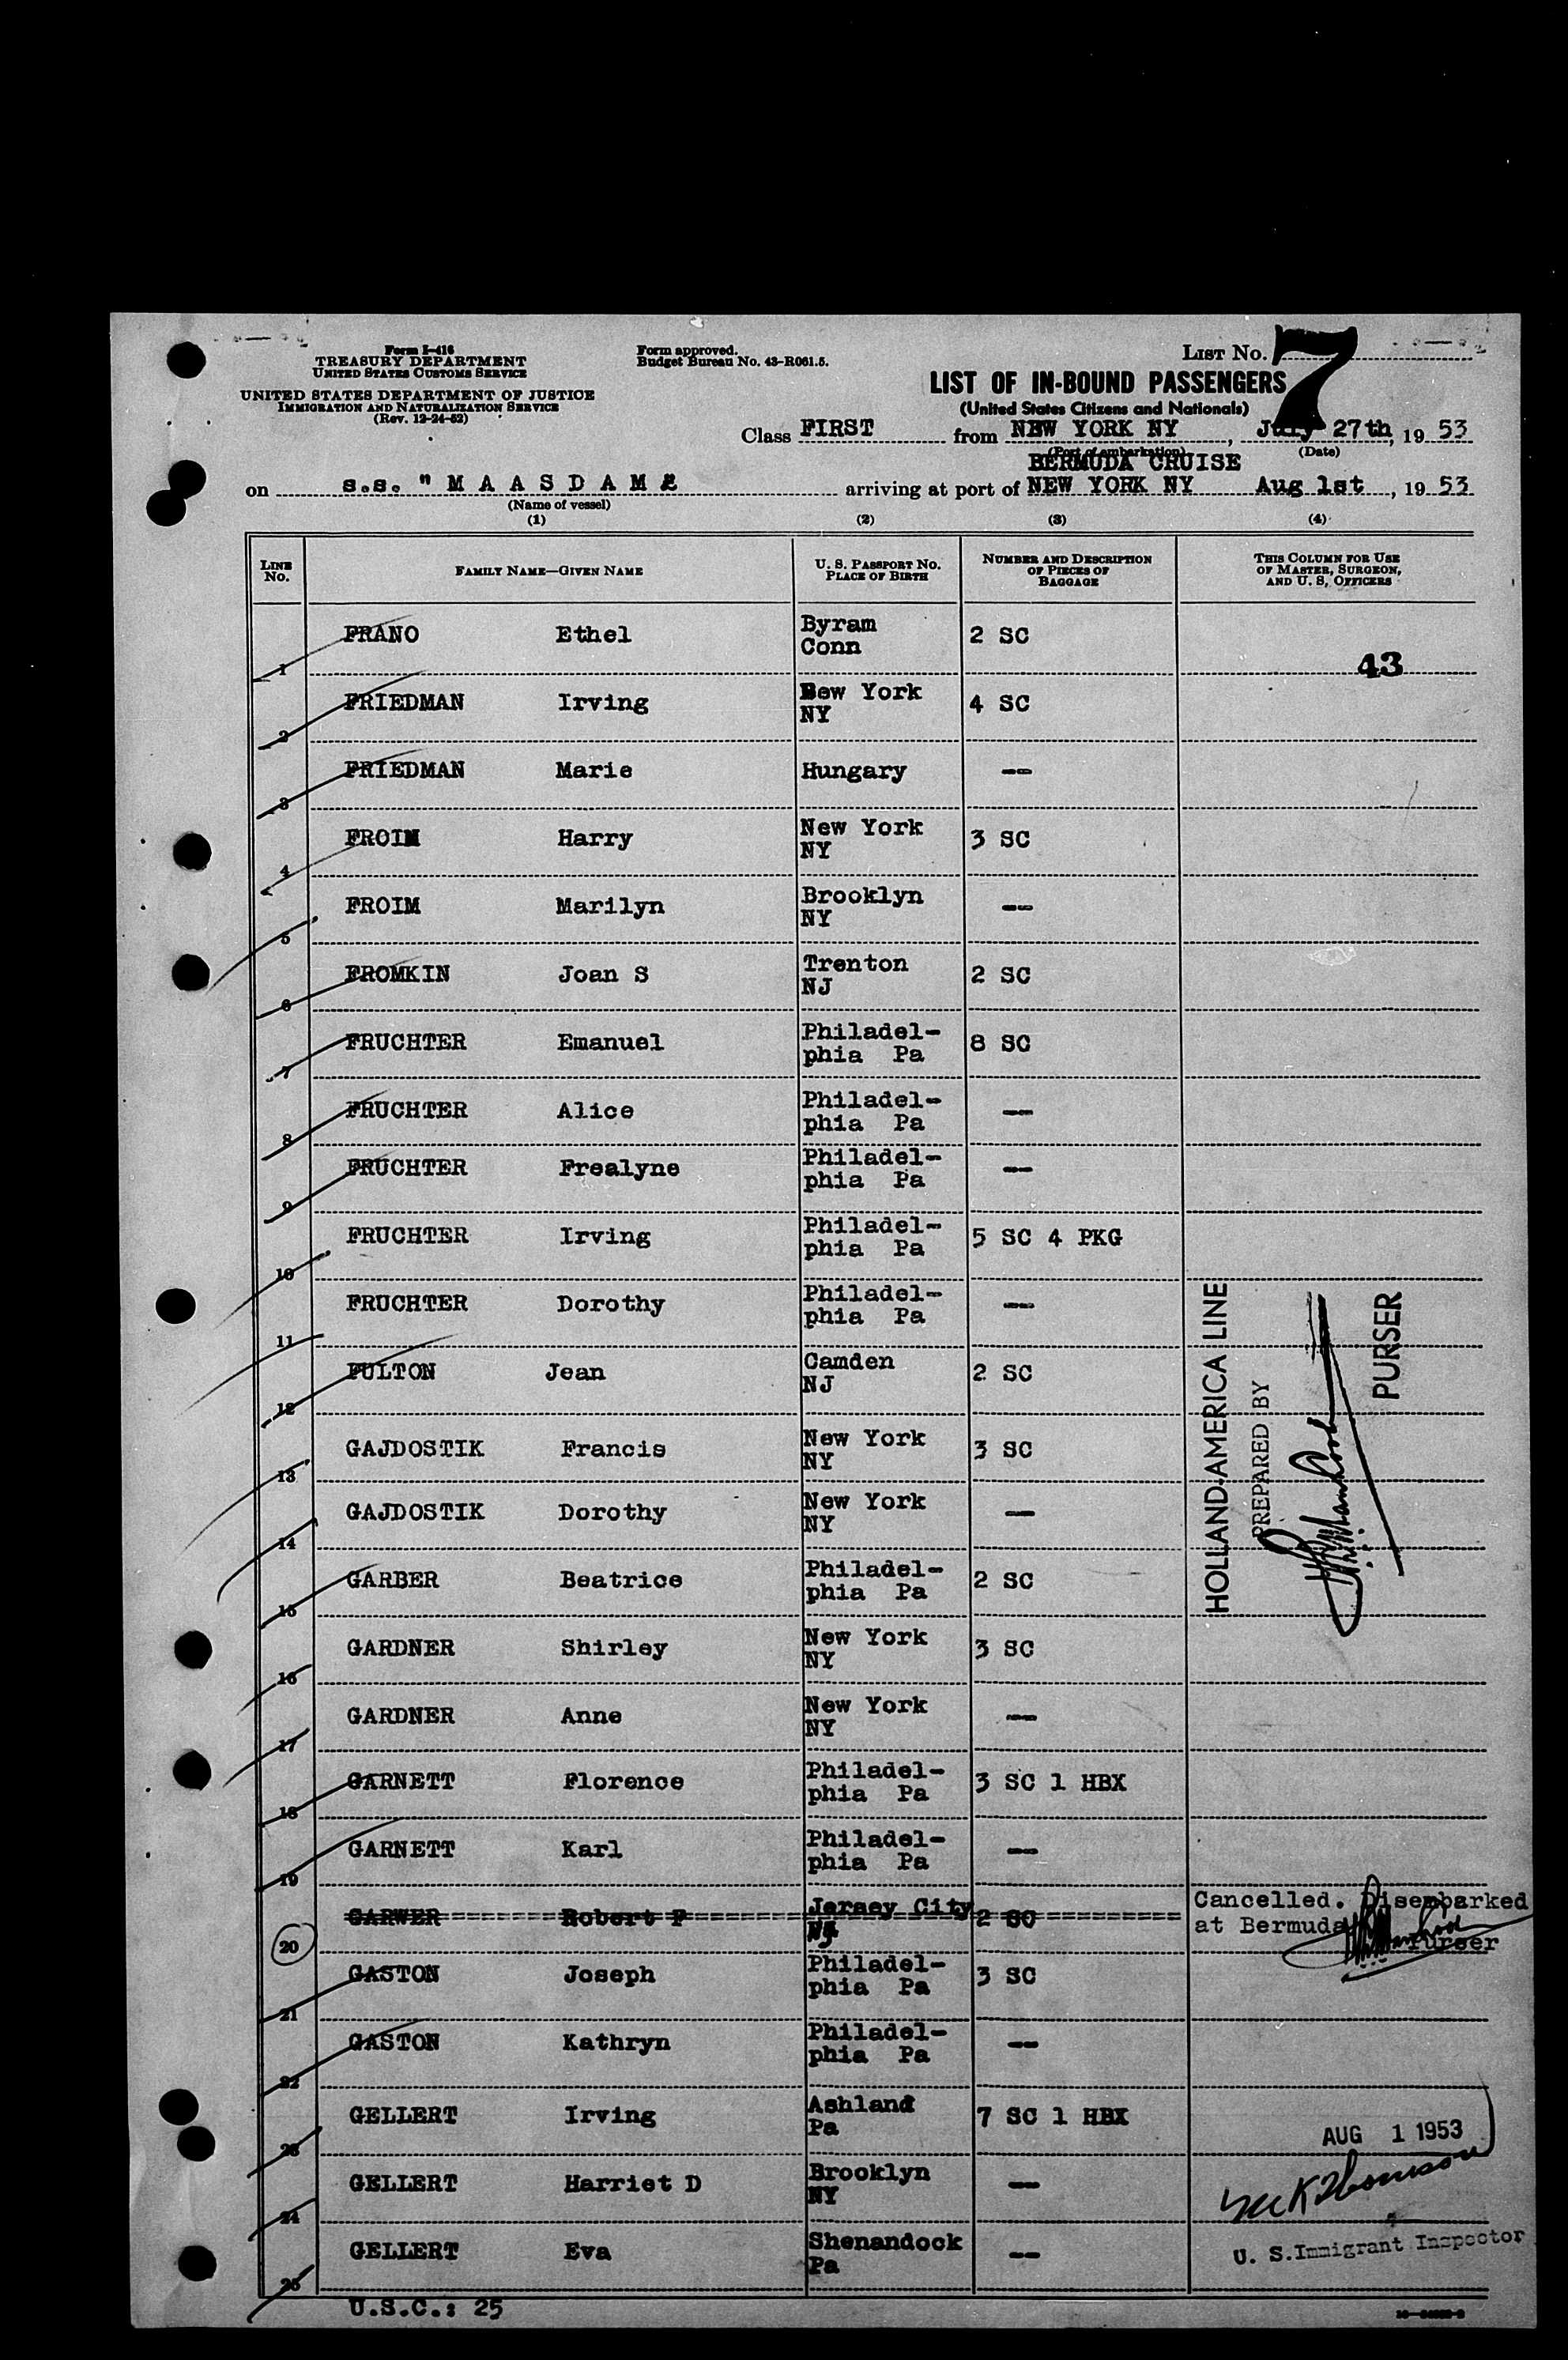 Form I-416
TREASURY DEPARTMENT
UNITED STATES CUSTOMS SERVICE
UNITED STATES DEPARTMENT OF JUSTICE
IMMIGRATION AND NATURALIZATION SERVICE
(Rev. 12-24-52)
Form approved.
Budget Bureau No. 43-R061.5.
LIST No. 7
LIST OF IN-BOUND PASSENGERS
(United States Citizens and Nationals)
Class FIRST from NEW YORK NY, July 27th, 19 53
(Port of embarkation) (Date)
BERMUDA CRUISE
on s.s. "M A A S D A M" arriving at port of NEW YORK NY Aug 1st, 19 53
(Name of vessel)
(1) (2) (3) (4)
LINE No. FAMILY NAME—GIVEN NAME U. S. PASSPORT No. PLACE OF BIRTH NUMBER AND DESCRIPTION OF PIECES OF BAGGAGE THIS COLUMN FOR USE OF MASTER, SURGEON, AND U. S. OFFICERS
1 FRANO Ethel Byram Conn 2 SC 43
2 FRIEDMAN Irving New York NY 4 SC
3 FRIEDMAN Marie Hungary --
4 FROIM Harry New York NY 3 SC
5 FROIM Marilyn Brooklyn NY --
6 FROMKIN Joan S Trenton NJ 2 SC
7 FRUCHTER Emanuel Philadel-phia Pa 8 SC
8 FRUCHTER Alice Philadel-phia Pa --
9 FRUCHTER Frealyne Philadel-phia Pa --
10 FRUCHTER Irving Philadel-phia Pa 5 SC 4 PKG
11 FRUCHTER Dorothy Philadel-phia Pa --
12 FULTON Jean Camden NJ 2 SC
13 GAJDOSTIK Francis New York NY 3 SC
14 GAJDOSTIK Dorothy New York NY --
15 GARBER Beatrice Philadel-phia Pa 2 SC
16 GARDNER Shirley New York NY 3 SC
17 GARDNER Anne New York NY --
18 GARNETT Florence Philadel-phia Pa 3 SC 1 HBX
19 GARNETT Karl Philadel-phia Pa --
20 GARWER Robert F Jersey City NJ 2 SC Cancelled. Disembarked at Bermuda Purser
21 GASTON Joseph Philadel-phia Pa 3 SC
22 GASTON Kathryn Philadel-phia Pa --
23 GELLERT Irving Ashland Pa 7 SC 1 HBX
24 GELLERT Harriet D Brooklyn NY --
25 GELLERT Eva Shenandock Pa --
HOLLAND-AMERICA LINE
PREPARED BY
PURSER
AUG 1 1953
U. S. Immigrant Inspector
U.S.C.: 25